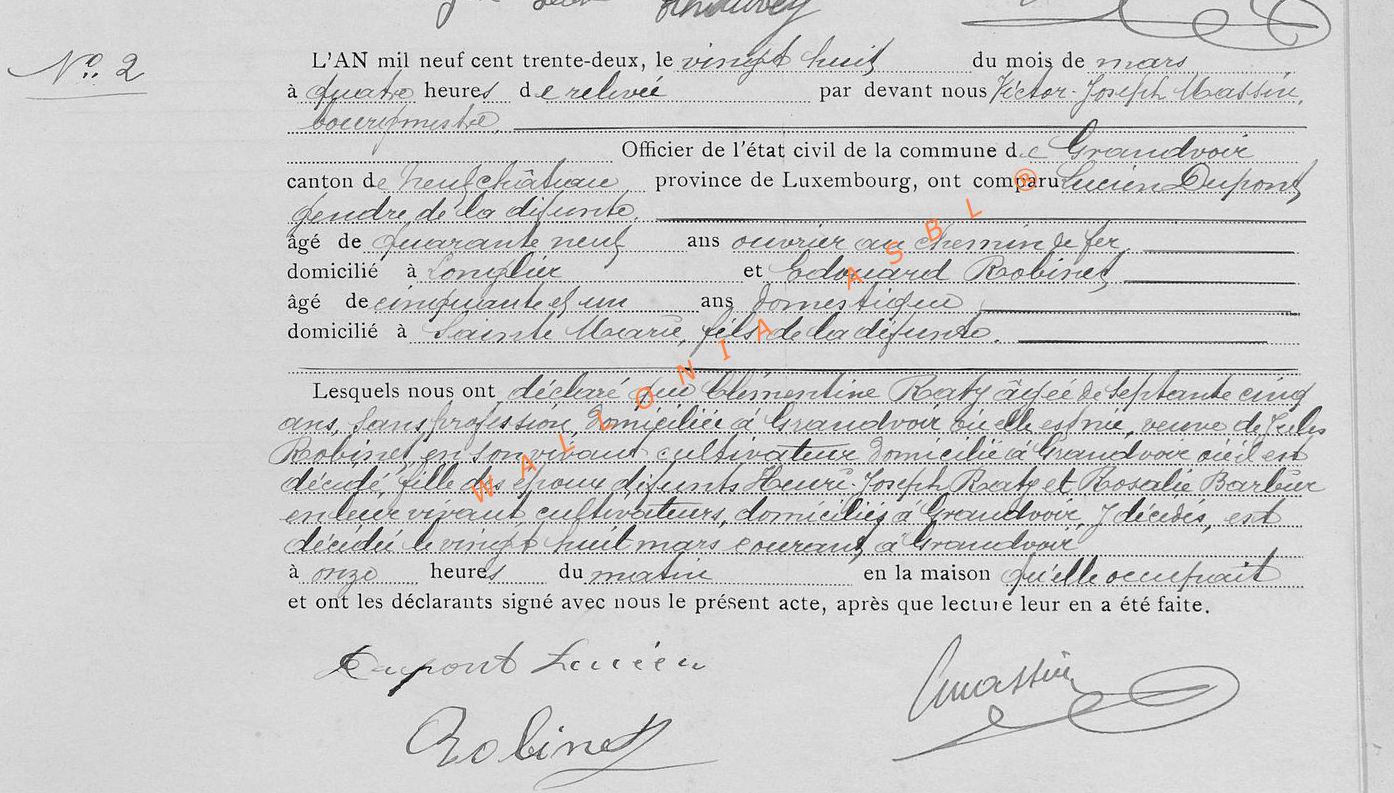 Nº. 2
L'AN mil neuf cent trente-deux, le vingt huit du mois de mars
à quatre heures de relevée par devant nous Victor-Joseph Massin,
bourgmestre,
Officier de l'état civil de la commune de Grandvoir
canton de Neufchâteau, province de Luxembourg, ont comparu Lucien Dupont,
gendre de la défunte,
âgé de quarante neuf ans ouvrier au chemin de fer,
domicilié à Longlier et Edouard Robinet,
âgé de cinquante et un ans domestique,
domicilié à Sainte Marie, fils de la défunte.
Lesquels nous ont déclaré que Clémentine Raty âgée de septante cinq
ans, sans profession, domiciliée à Grandvoir où elle est née, veuve de Jules
Robinet, en son vivant cultivateur domicilié à Grandvoir où il est
décédé, fille des époux défunts Henri-Joseph Raty et Rosalie Barbier
en leur vivant cultivateurs, domiciliés à Grandvoir, y décédés, est
décédée le vingt huit mars courant, à Grandvoir
à onze heures du matin en la maison qu'elle occupait
et ont les déclarants signé avec nous le présent acte, après que lecture leur en a été faite.
Dupont Lucien
Massin
Robinet
WALLONIA ASBL ®